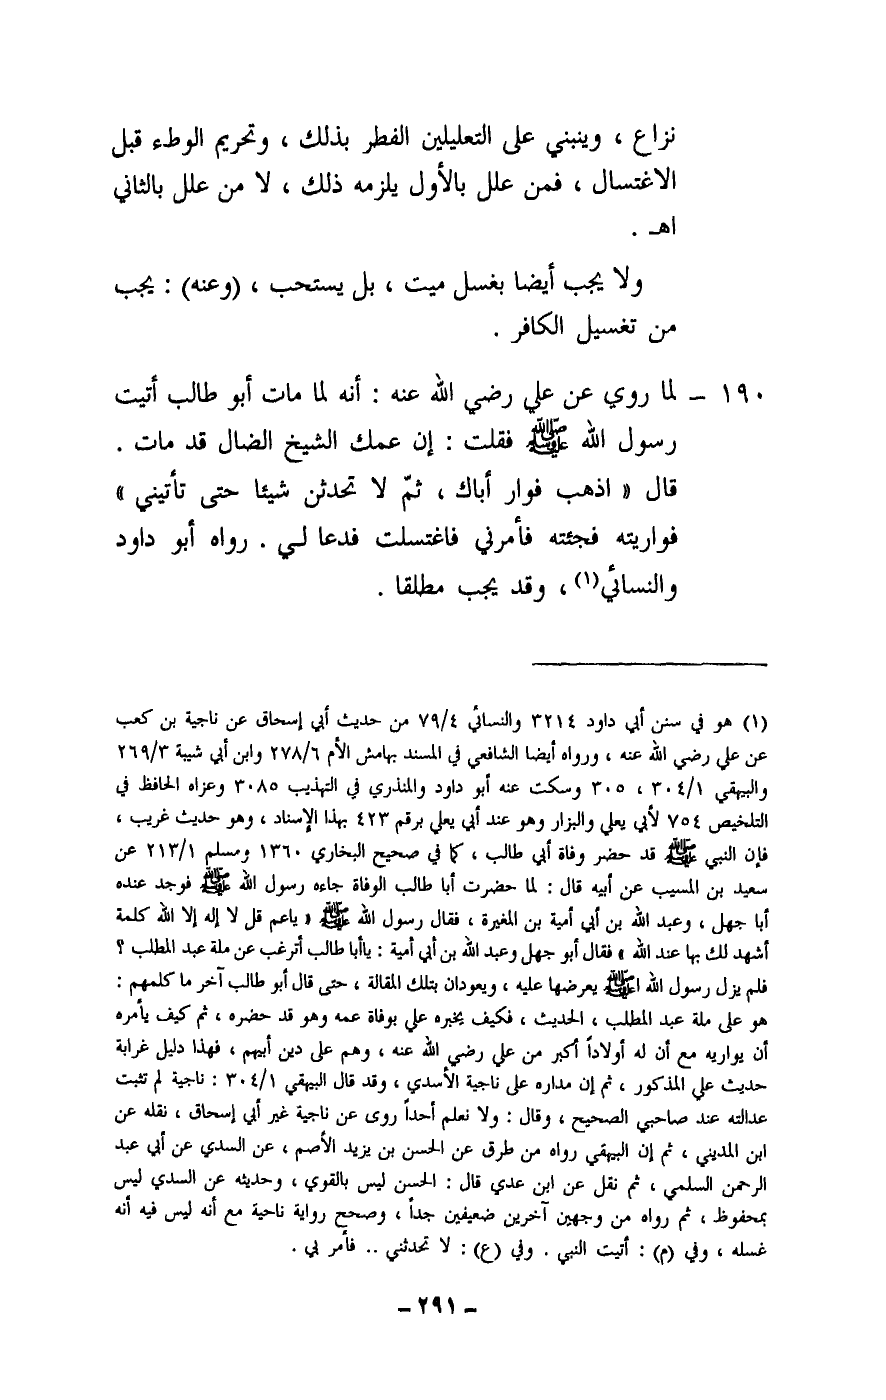 نزاع ، وينبني على التعليلين الفطر بذلك ، وتحريم الوطء قبل
الاغتسال ، فمن علل بالأول يلزمه ذلك ، لا من علل بالثاني
اهـ .
ولا يجب أيضا بغسل ميت ، بل يستحب ، (وعنه) : يجب
من تغسيل الكافر .
١٩٠ - لما روي عن علي رضي الله عنه : أنه لما مات أبو طالب أتيت
رسول الله ﷺ فقلت : إن عمك الشيخ الضال قد مات .
قال « اذهب فوار أباك ، ثمّ لا تحدثن شيئا حتى تأتيني »
فواريته فجئته فأمرني فاغتسلت فدعا لي . رواه أبو داود
والنسائي(١) ، وقد يجب مطلقا .
(١) هو في سنن أبي داود ٣٢١٤ والنسائي ٧٩/٤ من حديث أبي إسحاق عن ناجية بن كعب
عن علي رضي الله عنه ، ورواه أيضا الشافعي في المسند بهامش الأم ٢٧٨/٦ وابن أبي شيبة ٢٦٩/٣
والبيهقي ٣٠٤/١ ، ٣٠٥ وسكت عنه أبو داود والمنذري في التهذيب ٣٠٨٥ وعزاه الحافظ في
التلخيص ٧٥٤ لأبي يعلي والبزار وهو عند أبي يعلي برقم ٤٢٣ بهذا الإسناد ، وهو حديث غريب ،
فإن النبي ﷺ قد حضر وفاة أبي طالب ، كما في صحيح البخاري ١٣٦٠ ومسلم ٢١٣/١ عن
سعيد بن المسيب عن أبيه قال : لما حضرت أبا طالب الوفاة جاءه رسول الله ﷺ فوجد عنده
أبا جهل ، وعبد الله بن أبي أمية بن المغيرة ، فقال رسول الله ﷺ « ياعم قل لا إله إلا الله كلمة
أشهد لك بها عند الله » فقال أبو جهل وعبد الله بن أبي أمية : ياأبا طالب أترغب عن ملة عبد المطلب ؟
فلم يزل رسول الله ﷺ يعرضها عليه ، ويعودان بتلك المقالة ، حتى قال أبو طالب آخر ما كلمهم :
هو على ملة عبد المطلب ، الحديث ، فكيف يخبره علي بوفاة عمه وهو قد حضره ، ثم كيف يأمره
أن يواريه مع أن له أولاداً أكبر من علي رضي الله عنه ، وهم على دين أبيهم ، فهذا دليل غرابة
حديث علي المذكور ، ثم إن مداره على ناجية الأسدي ، وقد قال البيهقي ٣٠٤/١ : ناجية لم تثبت
عدالته عند صاحبي الصحيح ، وقال : ولا نعلم أحداً روى عن ناجية غير أبي إسحاق ، نقله عن
ابن المديني ، ثم إن البيهقي رواه من طرق عن الحسن بن يزيد الأصم ، عن السدي عن أبي عبد
الرحمن السلمي ، ثم نقل عن ابن عدي قال : الحسن ليس بالقوي ، وحديثه عن السدي ليس
بمحفوظ ، ثم رواه من وجهين آخرين ضعيفين جداً ، وصحح رواية ناحية مع أنه ليس فيه أنه
غسله ، وفي (م) : أتيت النبي . وفي (ع) : لا تحدثني .. فأمر بي .
- ٢٩١ -